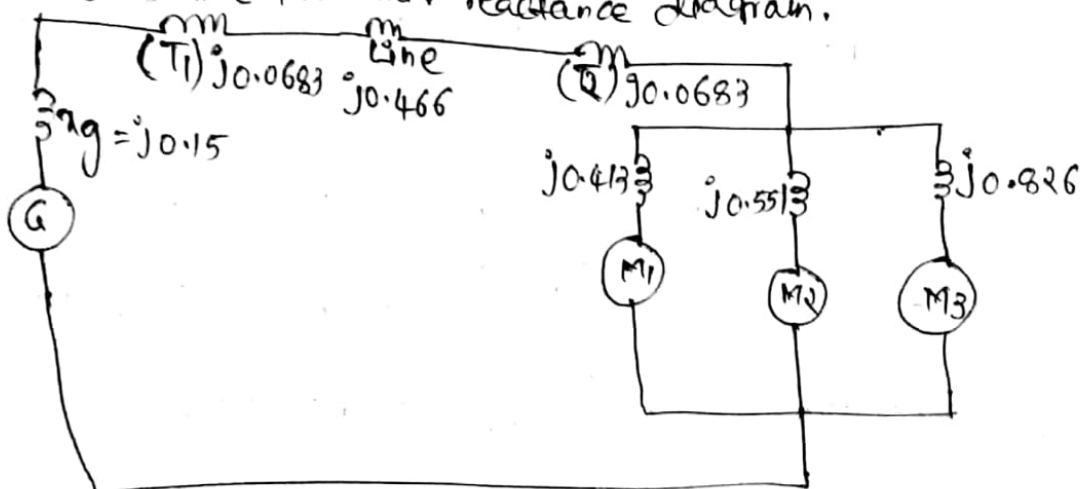 reactance diagram.
(T1) j0.0683
Line
j0.466
(T2) j0.0683
xg = j0.15
G
j0.413
j0.551
j0.826
M1
M2
M3